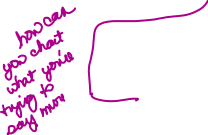 how can
you chart
what you're
trying to
say more